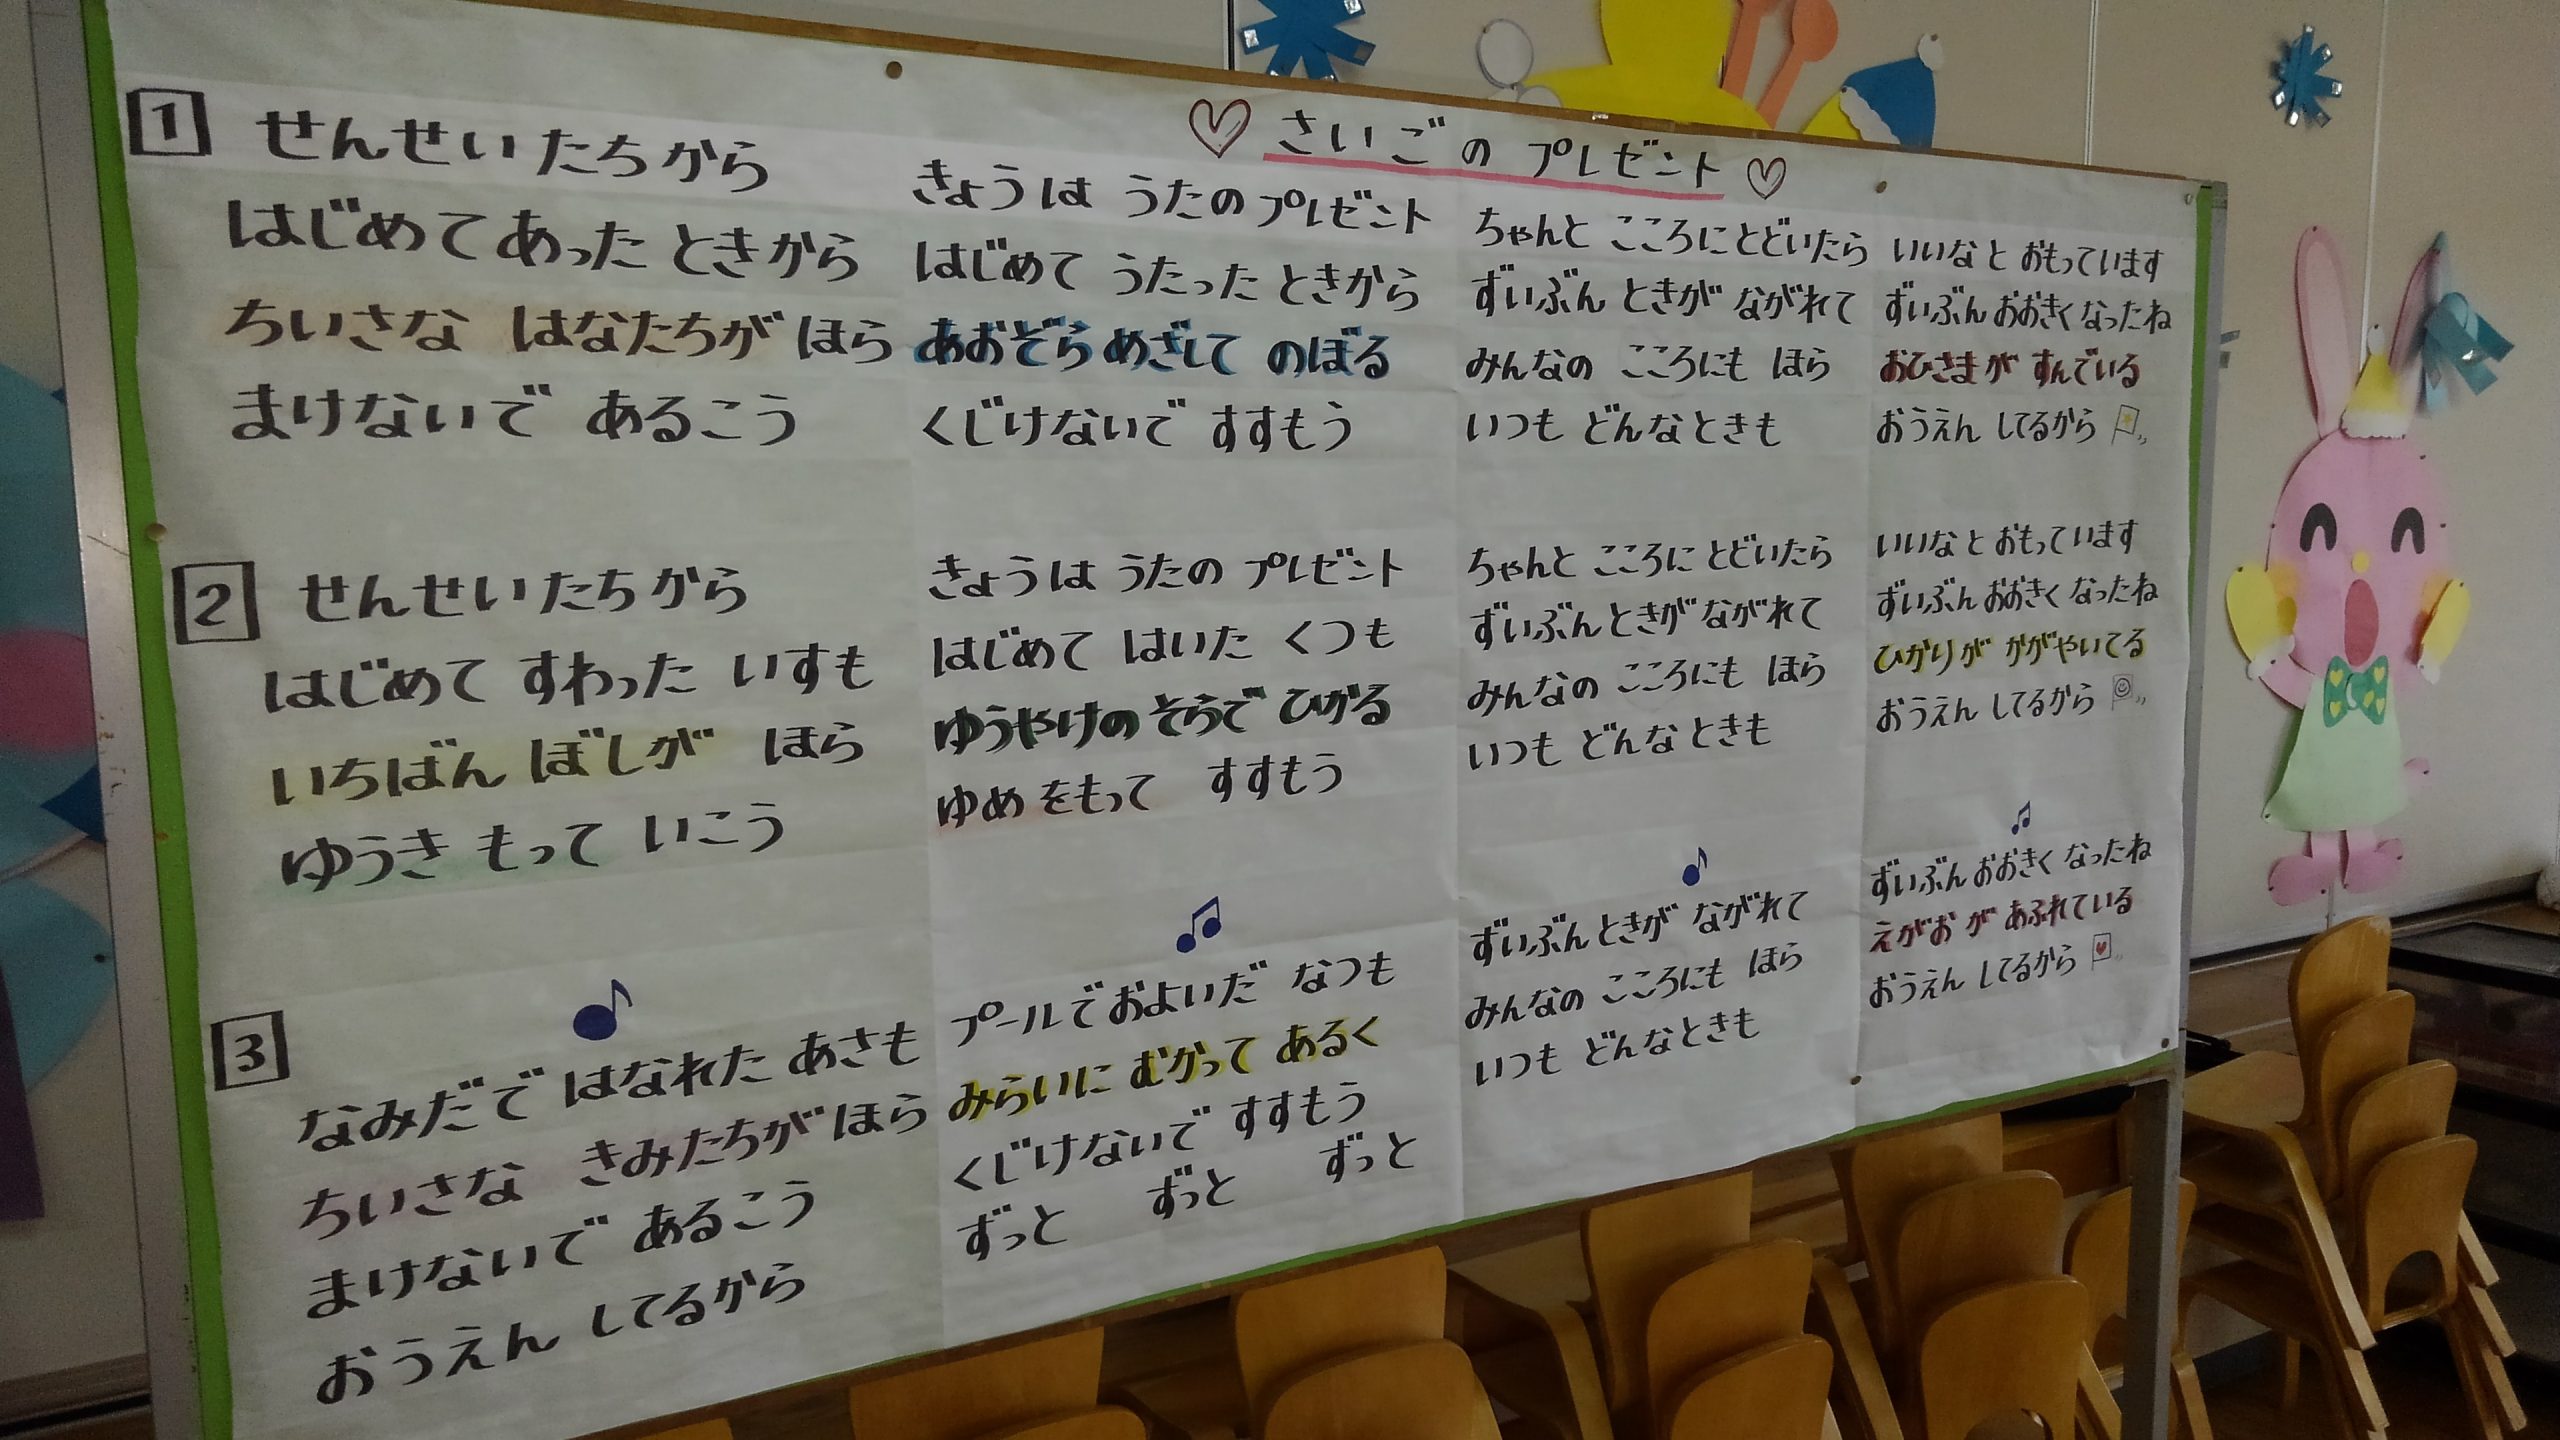 さいごの プレゼント
1 せんせいたちから きょうは うたの プレゼント ちゃんと こころに とどいたら いいなと おもっています
はじめて あった ときから はじめて うたった ときから ずいぶん ときが ながれて ずいぶん おおきく なったね
ちいさな はなたちが ほら あおぞら めざして のぼる みんなの こころにも ほら おひさまが すんでいる
まけないで あるこう くじけないで すすもう いつも どんなときも おうえん してるから
2 せんせいたちから きょうは うたの プレゼント ちゃんと こころに とどいたら いいなと おもっています
はじめて すわった いすも はじめて はいた くつも ずいぶん ときが ながれて ずいぶん おおきく なったね
いちばん ぼしが ほら ゆうやけの そらで ひかる みんなの こころにも ほら ひかりが かがやいてる
ゆうき もって いこう ゆめを もって すすもう いつも どんなときも おうえん してるから
3 なみだで はなれた あさも プールで およいだ なつも ずいぶん ときが ながれて ずいぶん おおきく なったね
ちいさな きみたちが ほら みらいに むかって あるく みんなの こころにも ほら えがおが あふれている
まけないで あるこう くじけないで すすもう いつも どんなときも おうえん してるから
おうえん してるから ずっと ずっと ずっと